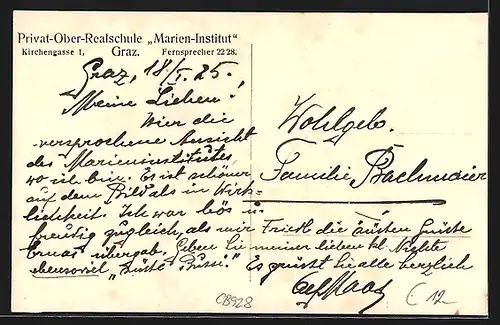 Privat-Ober-Realschule „Marien-Institut"
Kirchengasse 1, Graz. Fernsprecher 22 28.
Graz, 18/I. 25.
Meine Lieben!
Hier die
versprochene Ansicht
des Marieninstitutes,
wo ich bin. Es ist schöner
auf dem Bild als in Wirk-
lichkeit. Ich war bös u.
freudig zugleich, als mir Friedl die
übergab. Geben Sie meiner lieben kl. Nichte
ebensoviel
Es grüßt Sie alle herzlich
Wohlgeb.
Familie Bachmaier
CB928
12